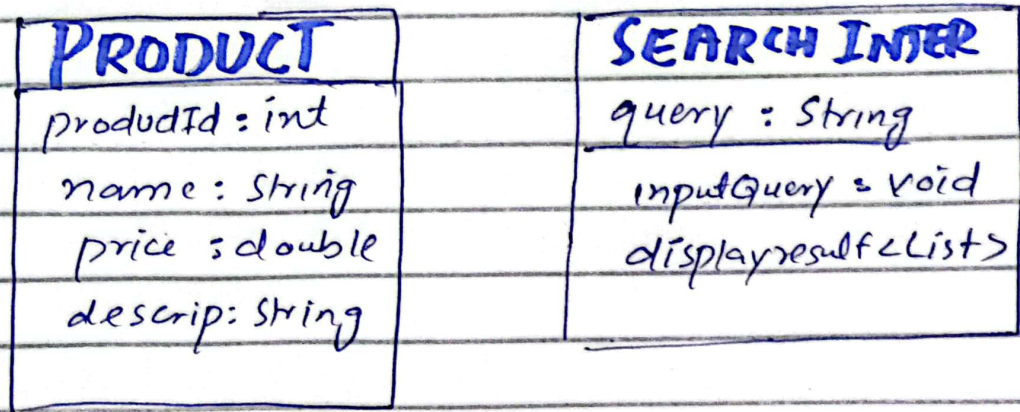 PRODUCT
produdId : int
name : String
price : double
descrip : String
SEARCH INTER
query : String
inputQuery : void
displayresult<List>